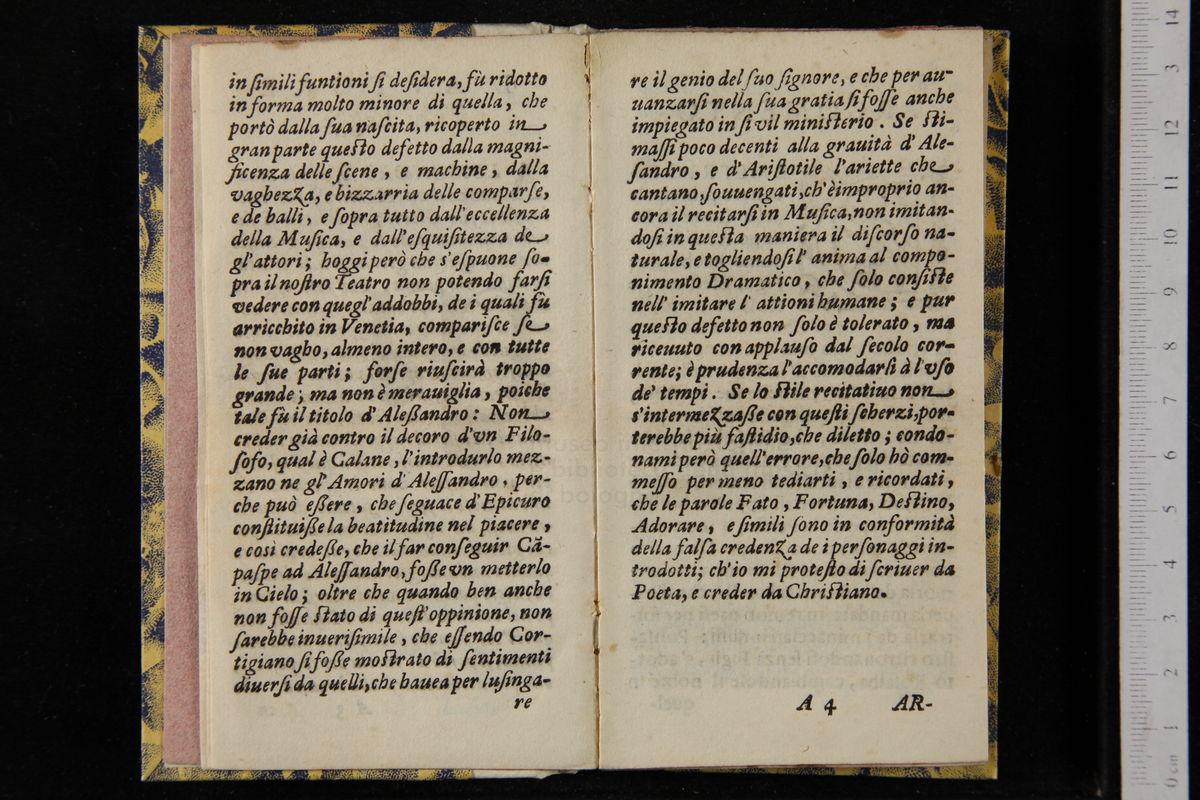 in ſimili funtioni ſi deſidera, fù ridotto
in forma molto minore di quella, che
portò dalla ſua naſcita, ricoperto in
gran parte queſto defetto dalla magni-
ficenza delle ſcene, e machine, dalla
vaghezza, e bizzarria delle comparſe,
e de balli, e ſopra tutto dall'eccellenza
della Muſica, e dall'eſquiſitezza de
gl'attori; hoggi però che s'eſpuone ſo-
pra il noſtro Teatro non potendo farſi
vedere con quegl'addobbi, de i quali fù
arricchito in Venetia, compariſce ſe
non vagho, almeno intero, e con tutte
le ſue parti; forſe riuſcirà troppo
grande; ma non è merauiglia, poiche
tale fù il titolo d'Aleßandro: Non
creder già contro il decoro d'vn Filo-
ſofo, qual è Calane, l'introdurlo mez-
zano ne gl'Amori d'Aleſſandro, per-
che può eßere, che ſeguace d'Epicuro
conſtituiße la beatitudine nel piacere,
e così credeße, che il far conſeguir Cã-
paſpe ad Aleſſandro, foße vn metterlo
in Cielo; oltre che quando ben anche
non foſſe ſtato di queſt'oppinione, non
ſarebbe inueriſimile, che eſſendo Cor-
tigiano ſi foße moſtrato di ſentimenti
diuerſi da quelli, che hauea per luſinga-
re
re il genio del ſuo ſignore, e che per au-
uanzarſi nella ſua gratia ſi foſſe anche
impiegato in ſi vil miniſterio. Se ſti-
maſſi poco decenti alla grauità d'Ale-
ſandro, e d'Ariſtotile l'ariette che
cantano, ſouuengati, ch'è improprio an-
cora il recitarſi in Muſica, non imitan-
doſi in queſta maniera il diſcorſo na-
turale, e togliendoſi l'anima al compo-
nimento Dramatico, che ſolo conſiſte
nell'imitare l'attioni humane; e pur
queſto defetto non ſolo è tolerato, ma
riceuuto con applauſo dal ſecolo cor-
rente; è prudenza l'accomodarſi à l'vſo
de' tempi. Se lo ſtile recitatiuo non
s'intermezzaße con queſti ſcherzi, por-
terebbe più faſtidio, che diletto; condo-
nami però quell'errore, che ſolo hò com-
meſſo per meno tediarti, e ricordati,
che le parole Fato, Fortuna, Deſtino,
Adorare, e ſimili ſono in conformità
della falſa credenza de i perſonaggi in-
trodotti; ch'io mi proteſto di ſcriuer da
Poeta, e creder da Chriſtiano.
A 4 AR-
14
3
12
11
10
9
8
7
6
5
4
3
2
1
0 cm